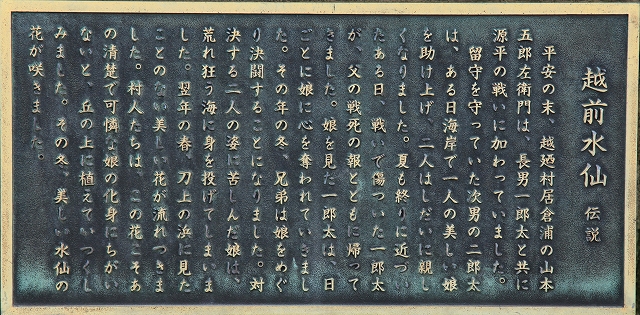 越前水仙 伝説
平安の末、越廼村居倉浦の山本
五郎左衛門は、長男一郎太と共に
源平の戦いに加わっていました。
留守を守っていた次男の二郎太
は、ある日海岸で一人の美しい娘
を助け上げ、二人はしだいに親し
くなりました。夏も終りに近づい
たある日、戦いで傷ついた一郎太
が、父の戦死の報とともに帰って
きました。娘を見た一郎太は、日
ごとに娘に心を奪われていきまし
た。その年の冬、兄弟は娘をめぐ
り決闘することになりました。対
決する二人の姿に苦しんだ娘は、
荒れ狂う海に身を投げてしまいま
した。翌年の春、刀上の浜に見た
ことのない美しい花が流れつきま
した。村人たちは、この花こそあ
の清楚で可憐な娘の化身にちがい
ないと、丘の上に植えていつくし
みました。その冬、美しい水仙の
花が咲きました。